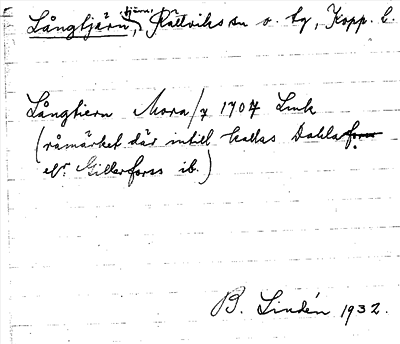 Långtjärn, tjärn, Kallviks sn o. by, Kopp. l.
Långtiern Mora/7 1707 Link
(råmärket där intill kallas Dahlaforss
el. Gillerforss ib.)
B. Lindén 1932.